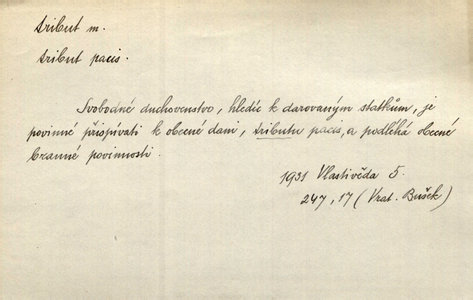 tribut m.
tribut pacis.
Svobodné duchovenstvo, hledíc k darovaným statkům, je
povinné přispívati k obecné dani, tributu pacis, a podléhá obecné
branné povinnosti.
1931 Vlastivěda 5.
247, 17 (Vrat. Bušek)